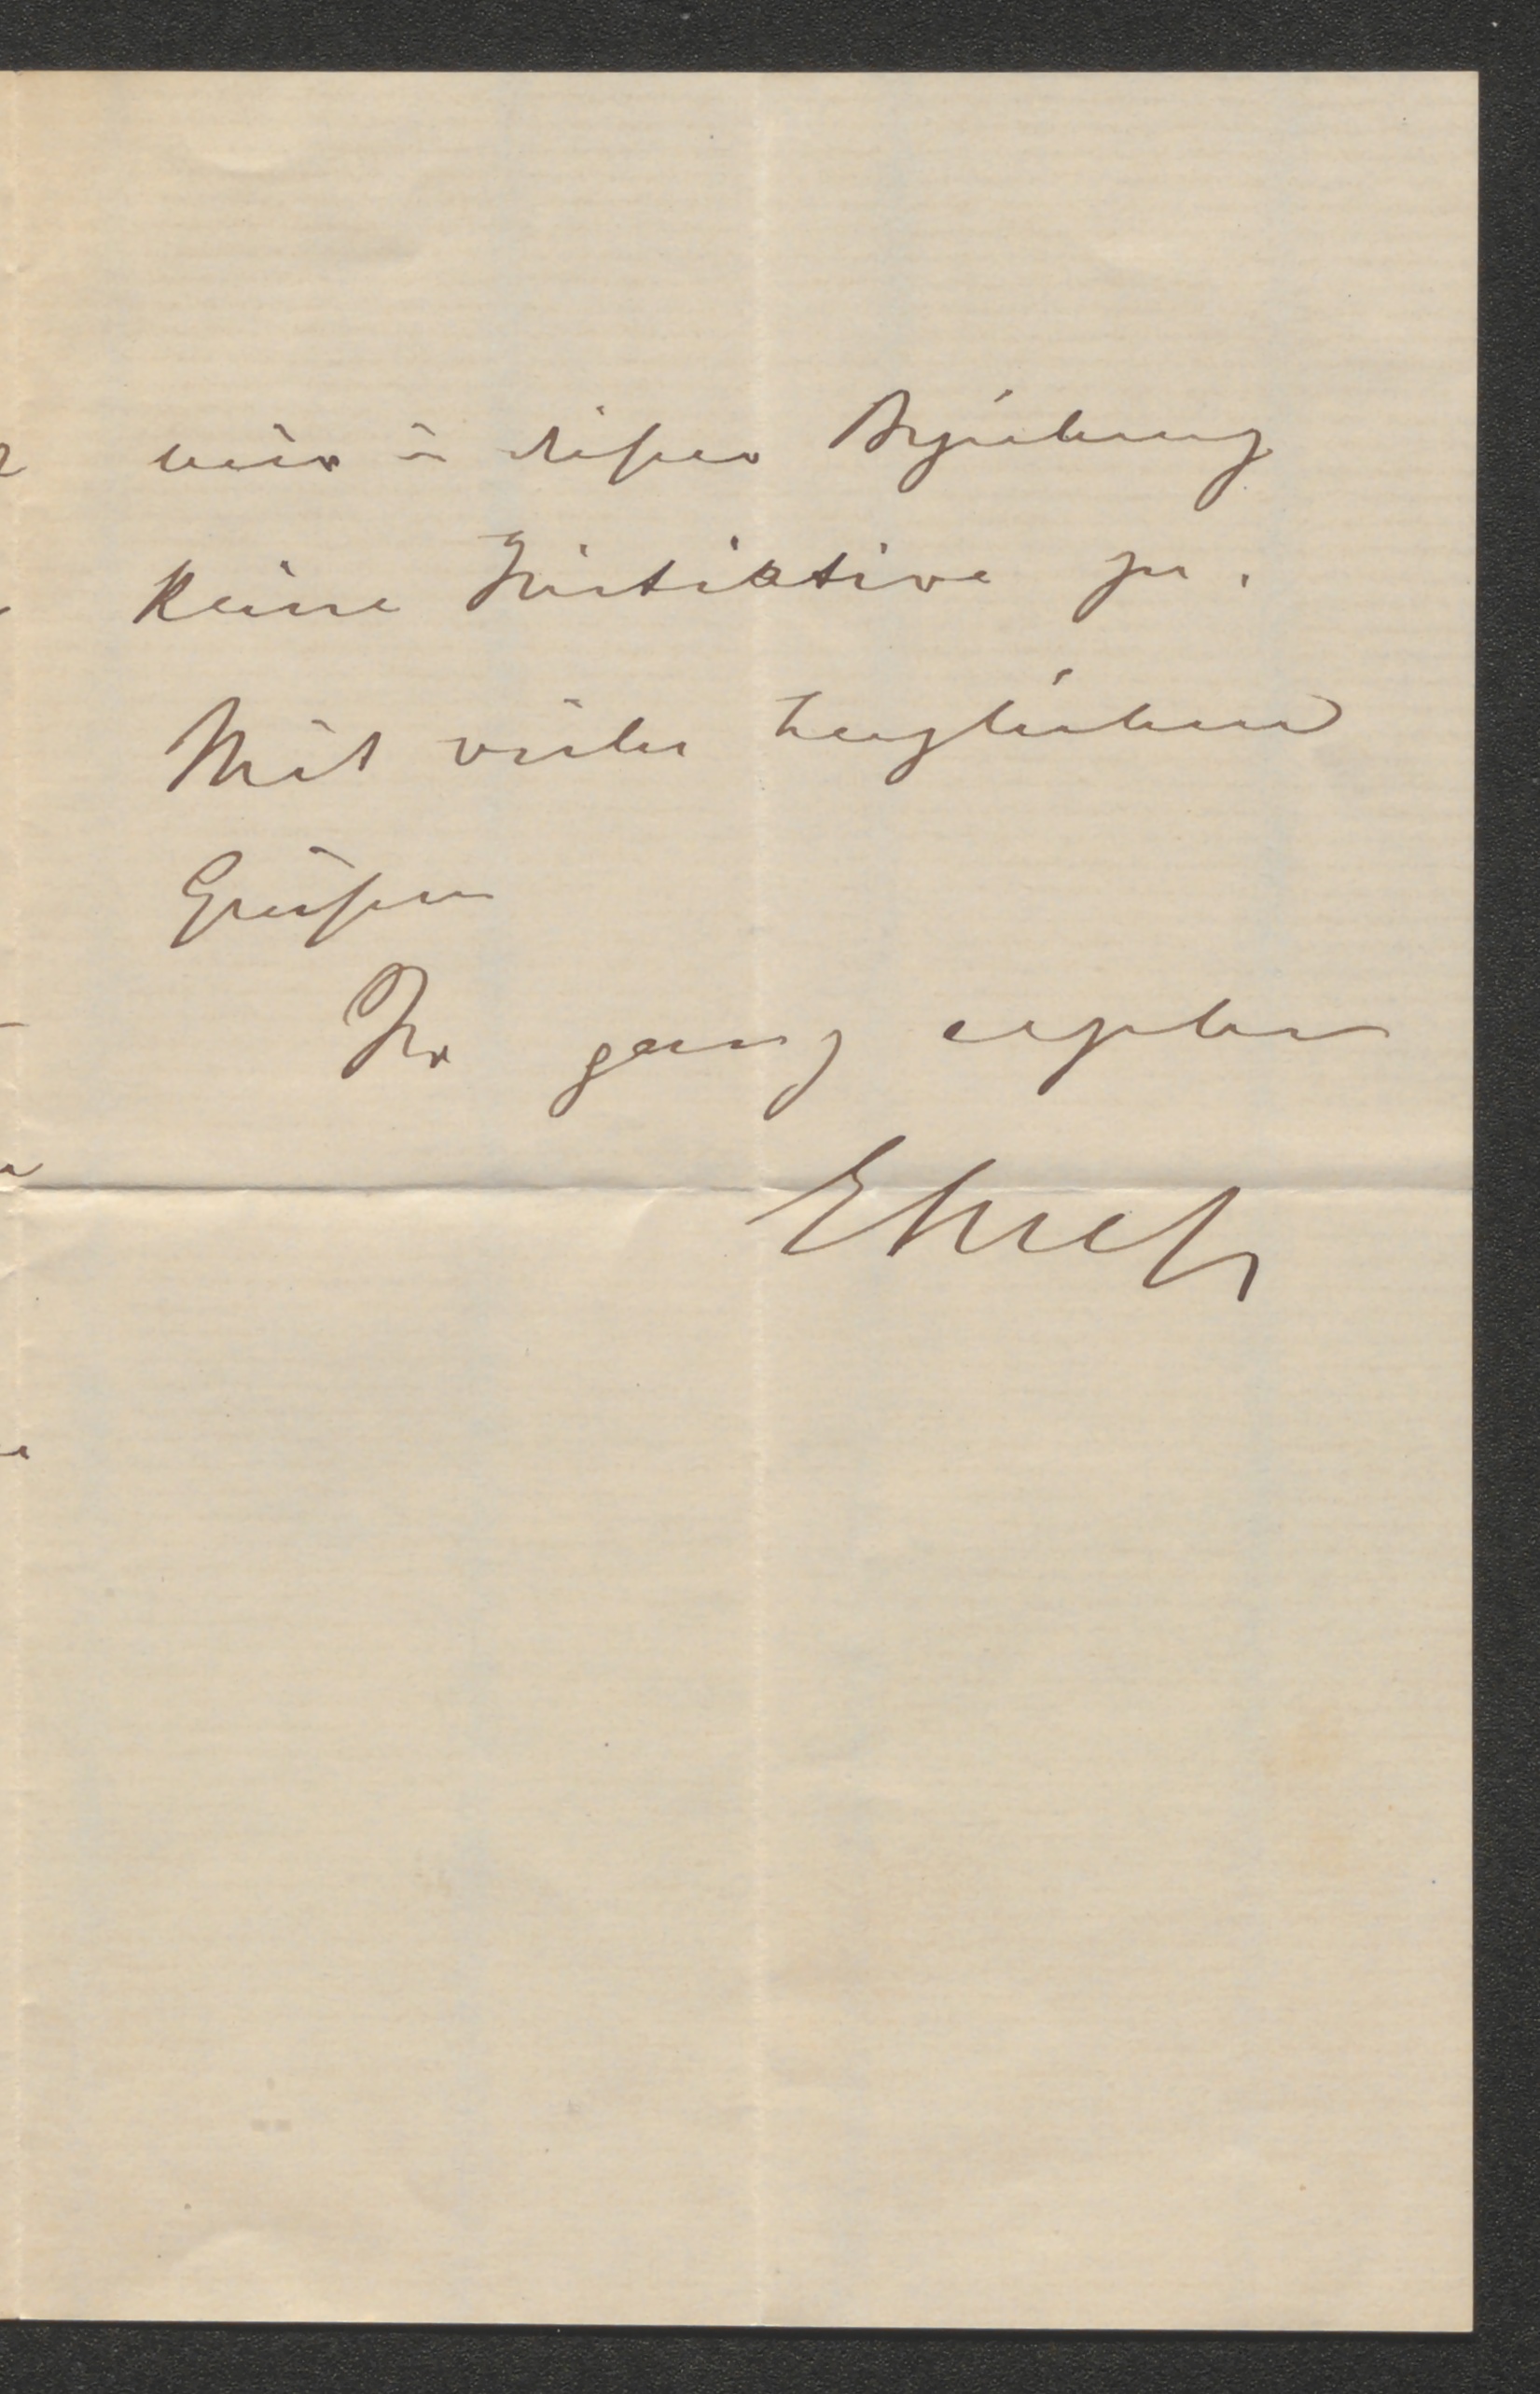 mir in dieser Beziehung
keine Initiative zu.
Mit vielen herzlichen
Grüßen
Ihr ganz ergebener